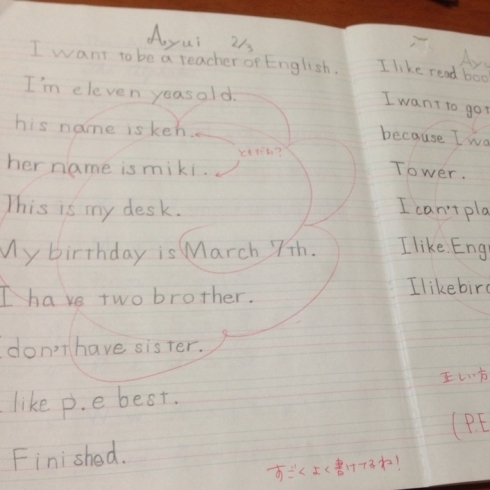 Ayui 2/3
I want to be a teacher of English.
I'm eleven yeasold.
his name is ken.
her name is miki.
This is my desk.
My birthday is March 7th.
I have two brother.
I don't have sister.
I like p.e best.
Finished.
すごくよく書けてるね!
I like read
I want to go
because I
Tower.
I can't
I like.
I like
(P.E